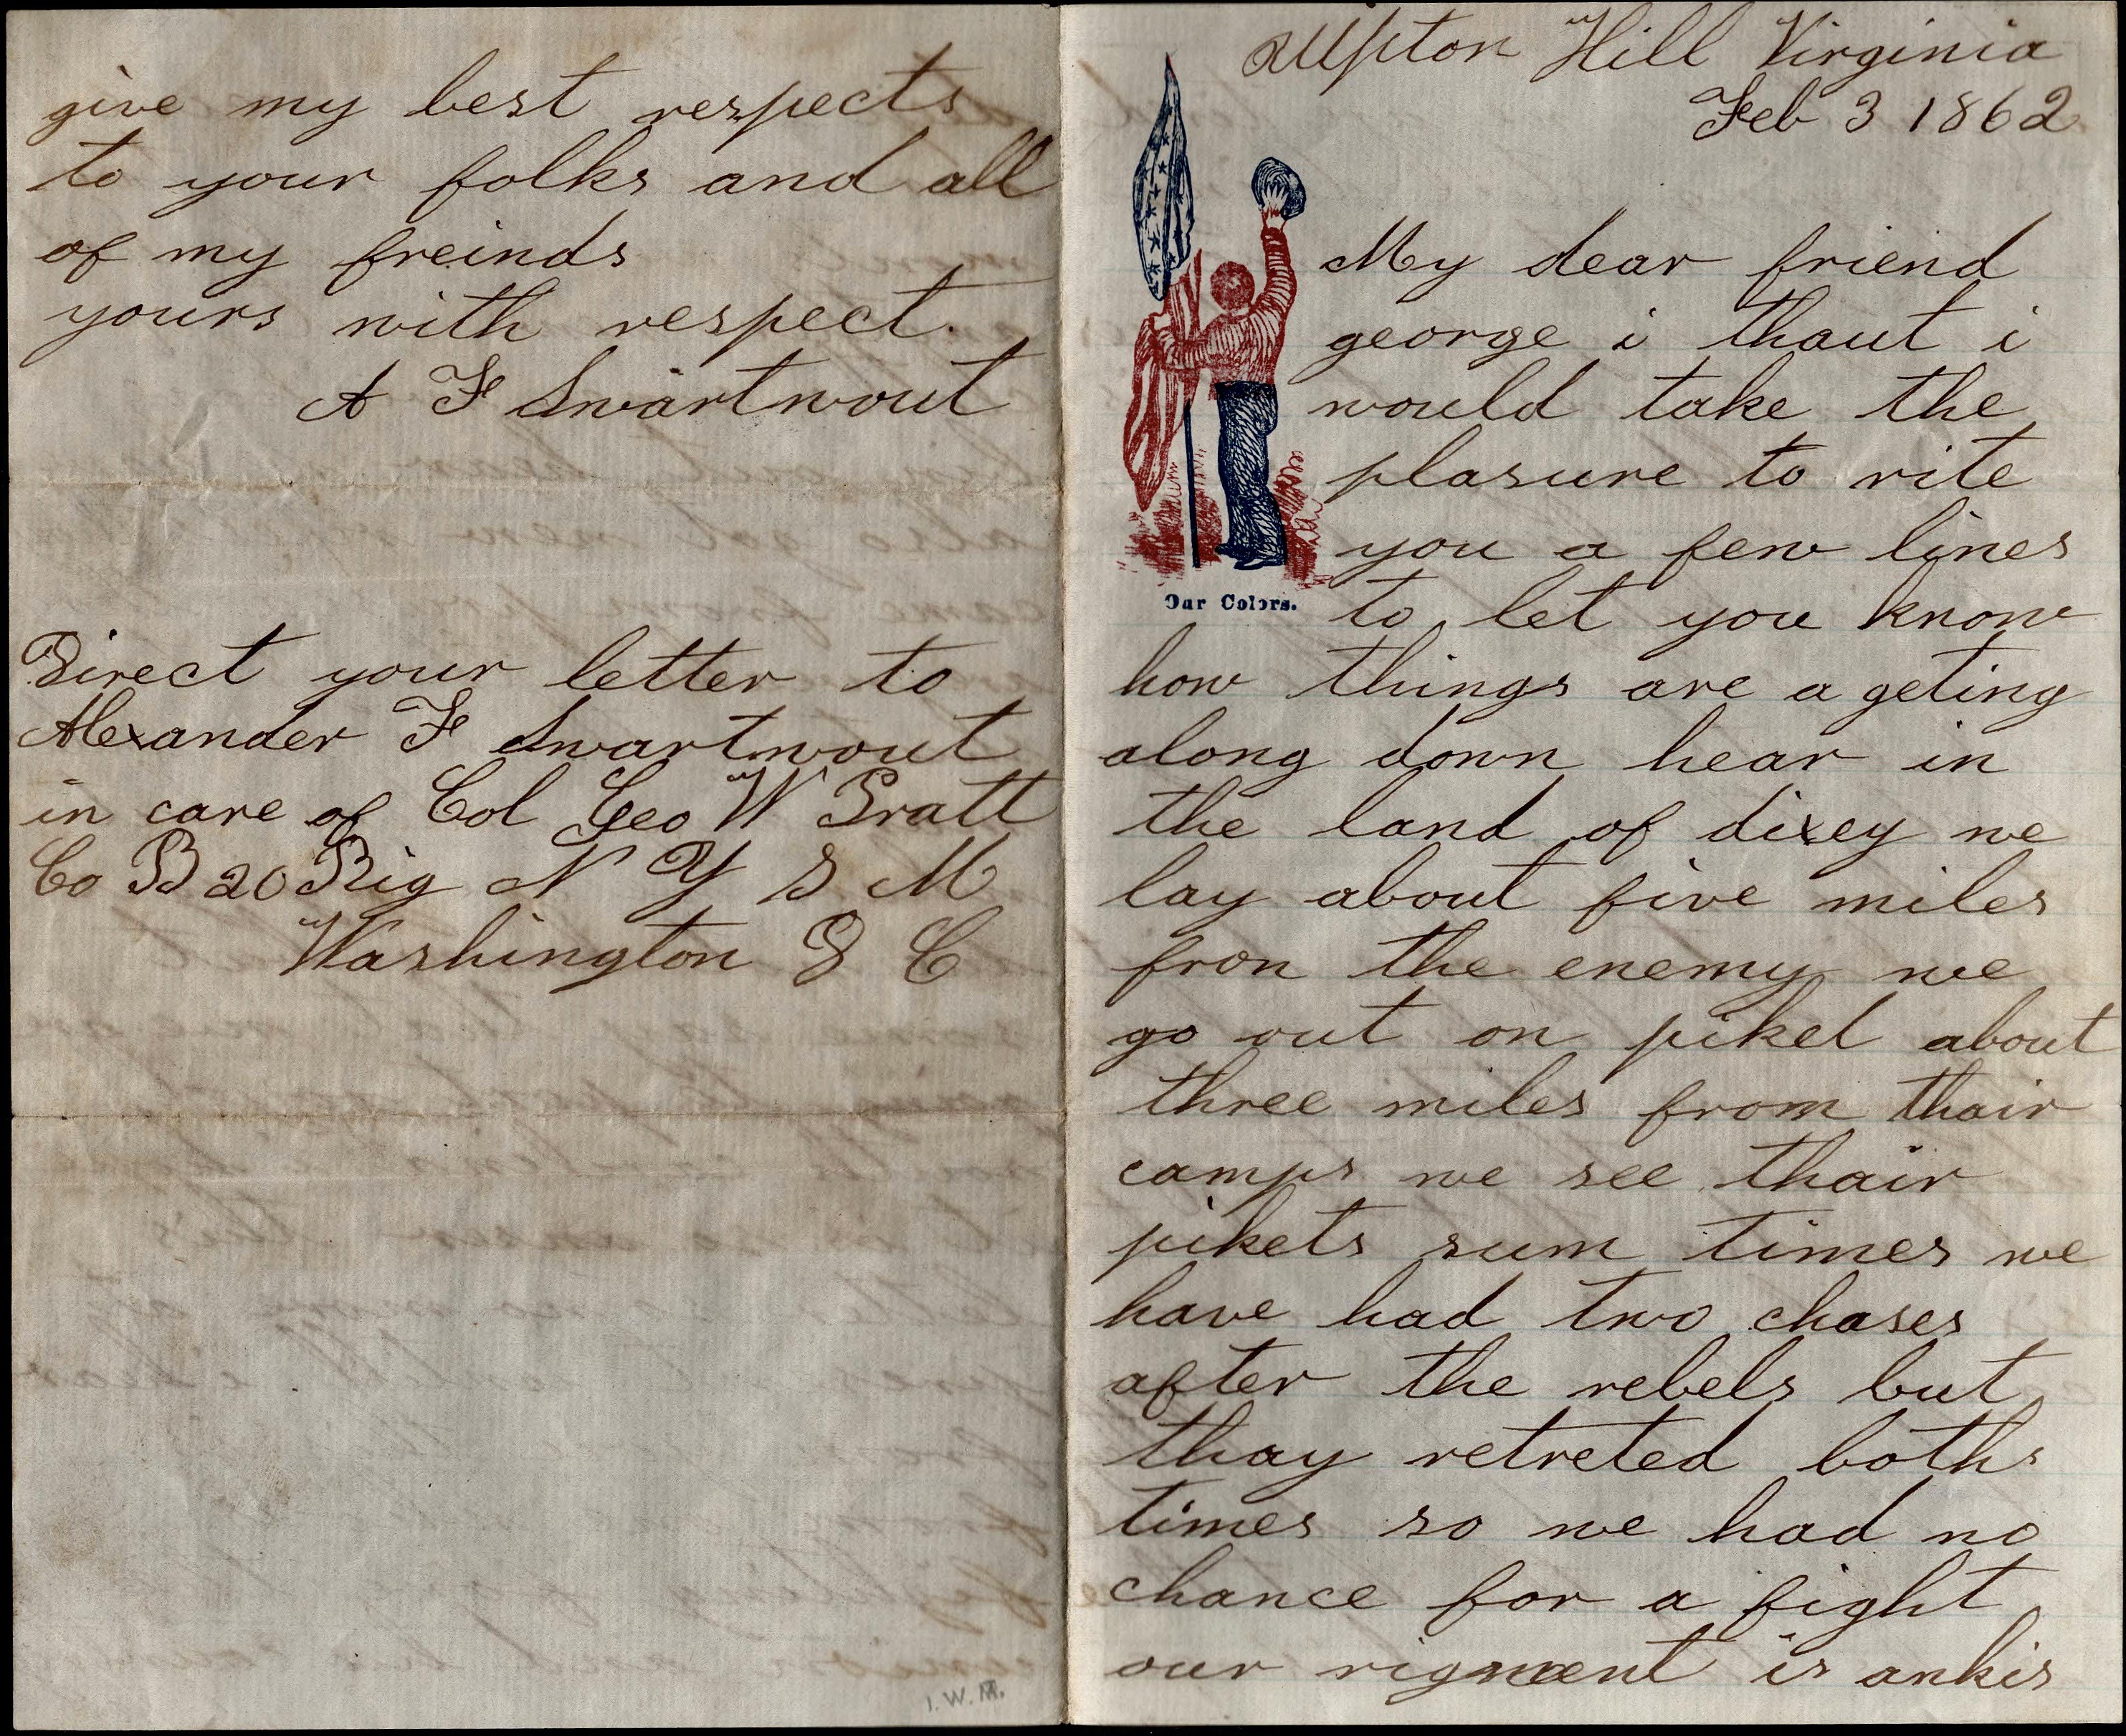 Upton Hill Virginia
Feb 3 1862
My dear friend
george i thaut i
would take the
plasure to rite
you a few lines
to let you know
Our Colors.
how things are a geting
along down hear in
the land of dixey we
lay about five miles
fron the enemy we
go out on piket about
three miles from thair
camps we see thair
pikets sum times we
have had two chases
after the rebels but
thay retreted boths
times so we had no
chance for a fight
our rigment is ankis
give my best respects
to your folks and all
of my freinds
yours with respect.
A F Swartwout
Direct your letter to
Alexander F Swartwout
in care of Col Geo W Pratt
Co B 20 Rig N Y S M
Washington D C
I.W.M.